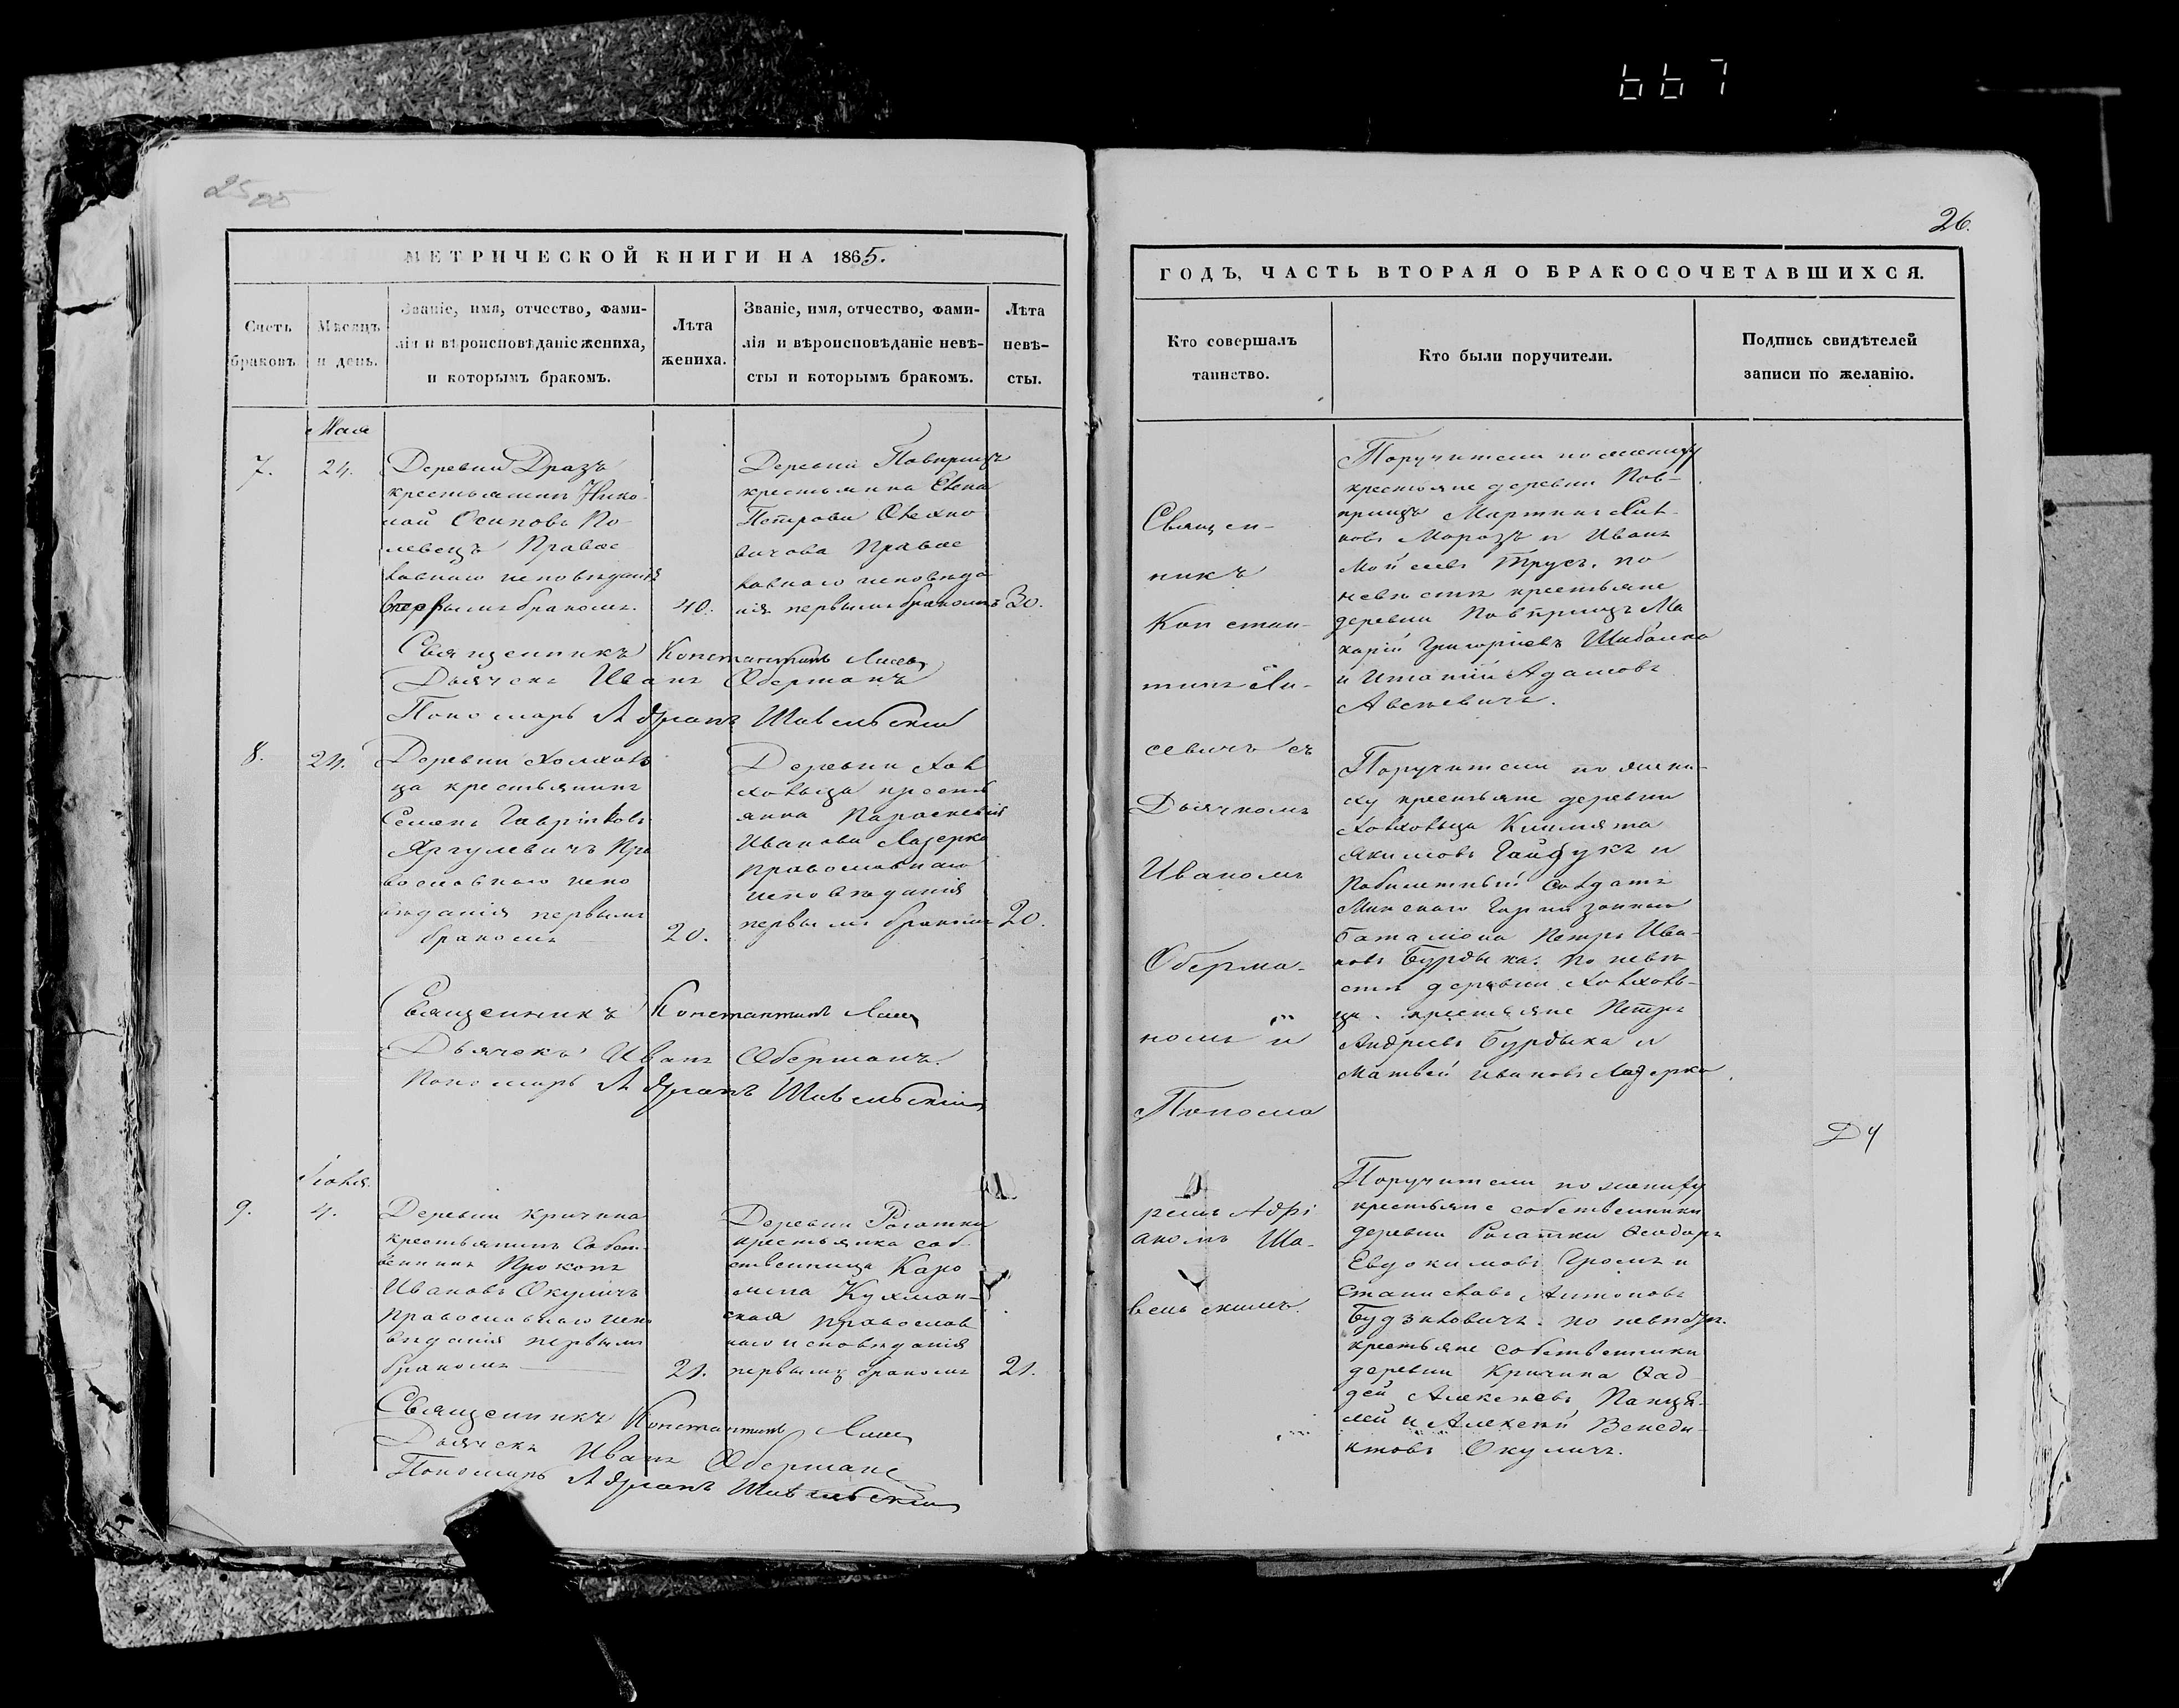 667
25
26.
МЕТРИЧЕСКОЙ КНИГИ НА 1865.
Счетъ браковъ
Мѣсяцъ и день.
Званіе, имя, отчество, фами-
лія и вѣроисповѣданіе жениха,
и которымъ бракомъ.
Лѣта
жениха.
Званіе, имя, отчество, фами-
лія и вѣроисповѣданіе невѣ-
сты и которымъ бракомъ.
Лѣта
невѣ-
сты.
Мая
7.
24.
Деревни
крестьянинъ Нико-
лай Осиповъ По-
левецъ Правос
лавнаго исповѣданія
первымъ бракомъ.
40.
Деревни
крестьянка Елена
Петрова
Правос
лавнаго исповѣда
нія первымъ бракомъ
30.
Священникъ Константинъ
Дьячекъ Иванъ Оберманъ
Пономарь Адріанъ Шавельскій
8.
24.
Деревни
ца крестьянинъ
Семенъ Гавріиловъ
Яргулевичъ Пра
вославнаго испо
вѣданія первымъ
бракомъ
20.
Деревни Хол
ховьца кресть
янка Параскевія
Иванова Ладерко
православнаго
исповѣданія
первымъ бракомъ
20.
Священникъ Константинъ
Дьячекъ Иванъ Оберманъ.
Пономарь Адріанъ Шавельскій
9.
4.
Деревни Кричина
крестьянинъ Собст-
венникъ Прокопъ
Ивановъ Окуличъ
православнаго испо
вѣданія первымъ
бракомъ
21.
Деревни Рогатки
крестьянка соб-
ственница Каро
лина Кухман-
ская православ
наго исповѣданія
первымъ бракомъ
21.
Священникъ Константинъ
Дьячекъ Иванъ Оберманъ
Пономарь Адріанъ Шавельскій
ГОДЪ, ЧАСТЬ ВТОРАЯ О БРАКОСОЧЕТАВШИХСЯ.
Кто совершалъ
таинство.
Кто были поручители.
Подпись свидѣтелей
записи по желанію.
Священ-
никъ
Констан-
тинъ Ли-
севичъ съ
Дьячкомъ
Иваномъ
Оберма-
номъ и
Понома
ремъ Адрі
аномъ Ша-
вельскимъ.
Поручители по жениху
крестьяне деревни
Мартинъ
новъ Морозъ и Иванъ
Трусъ, по
невѣстѣ крестьяне
деревни Ма
карій Григоріевъ
и Игнатій Адамовъ
Поручители по жени-
ху крестьяне деревни
Холховьца
Якимовъ Гайдукъ и
Побилетный Солдатъ
Минскаго Гарнизоннаго
баталіона Петръ Ива-
новъ Бурдыка. По невѣ
стѣ деревни Холховь-
ца крестьяне Петръ
Андреевъ Бурдыка и
Матвей Ивановъ Ладерко.
Поручители по жениху
крестьяне собственники
деревни Рогатки Ѳеодоръ
Евдокимовъ Громъ и
Станиславъ Антоновъ
Будзиловичъ. По невѣстѣ
крестьяне собственники
деревни Кричина Ѳад-
дей Алексѣевъ
и Алексѣй Венеди-
ктовъ Окуличъ.